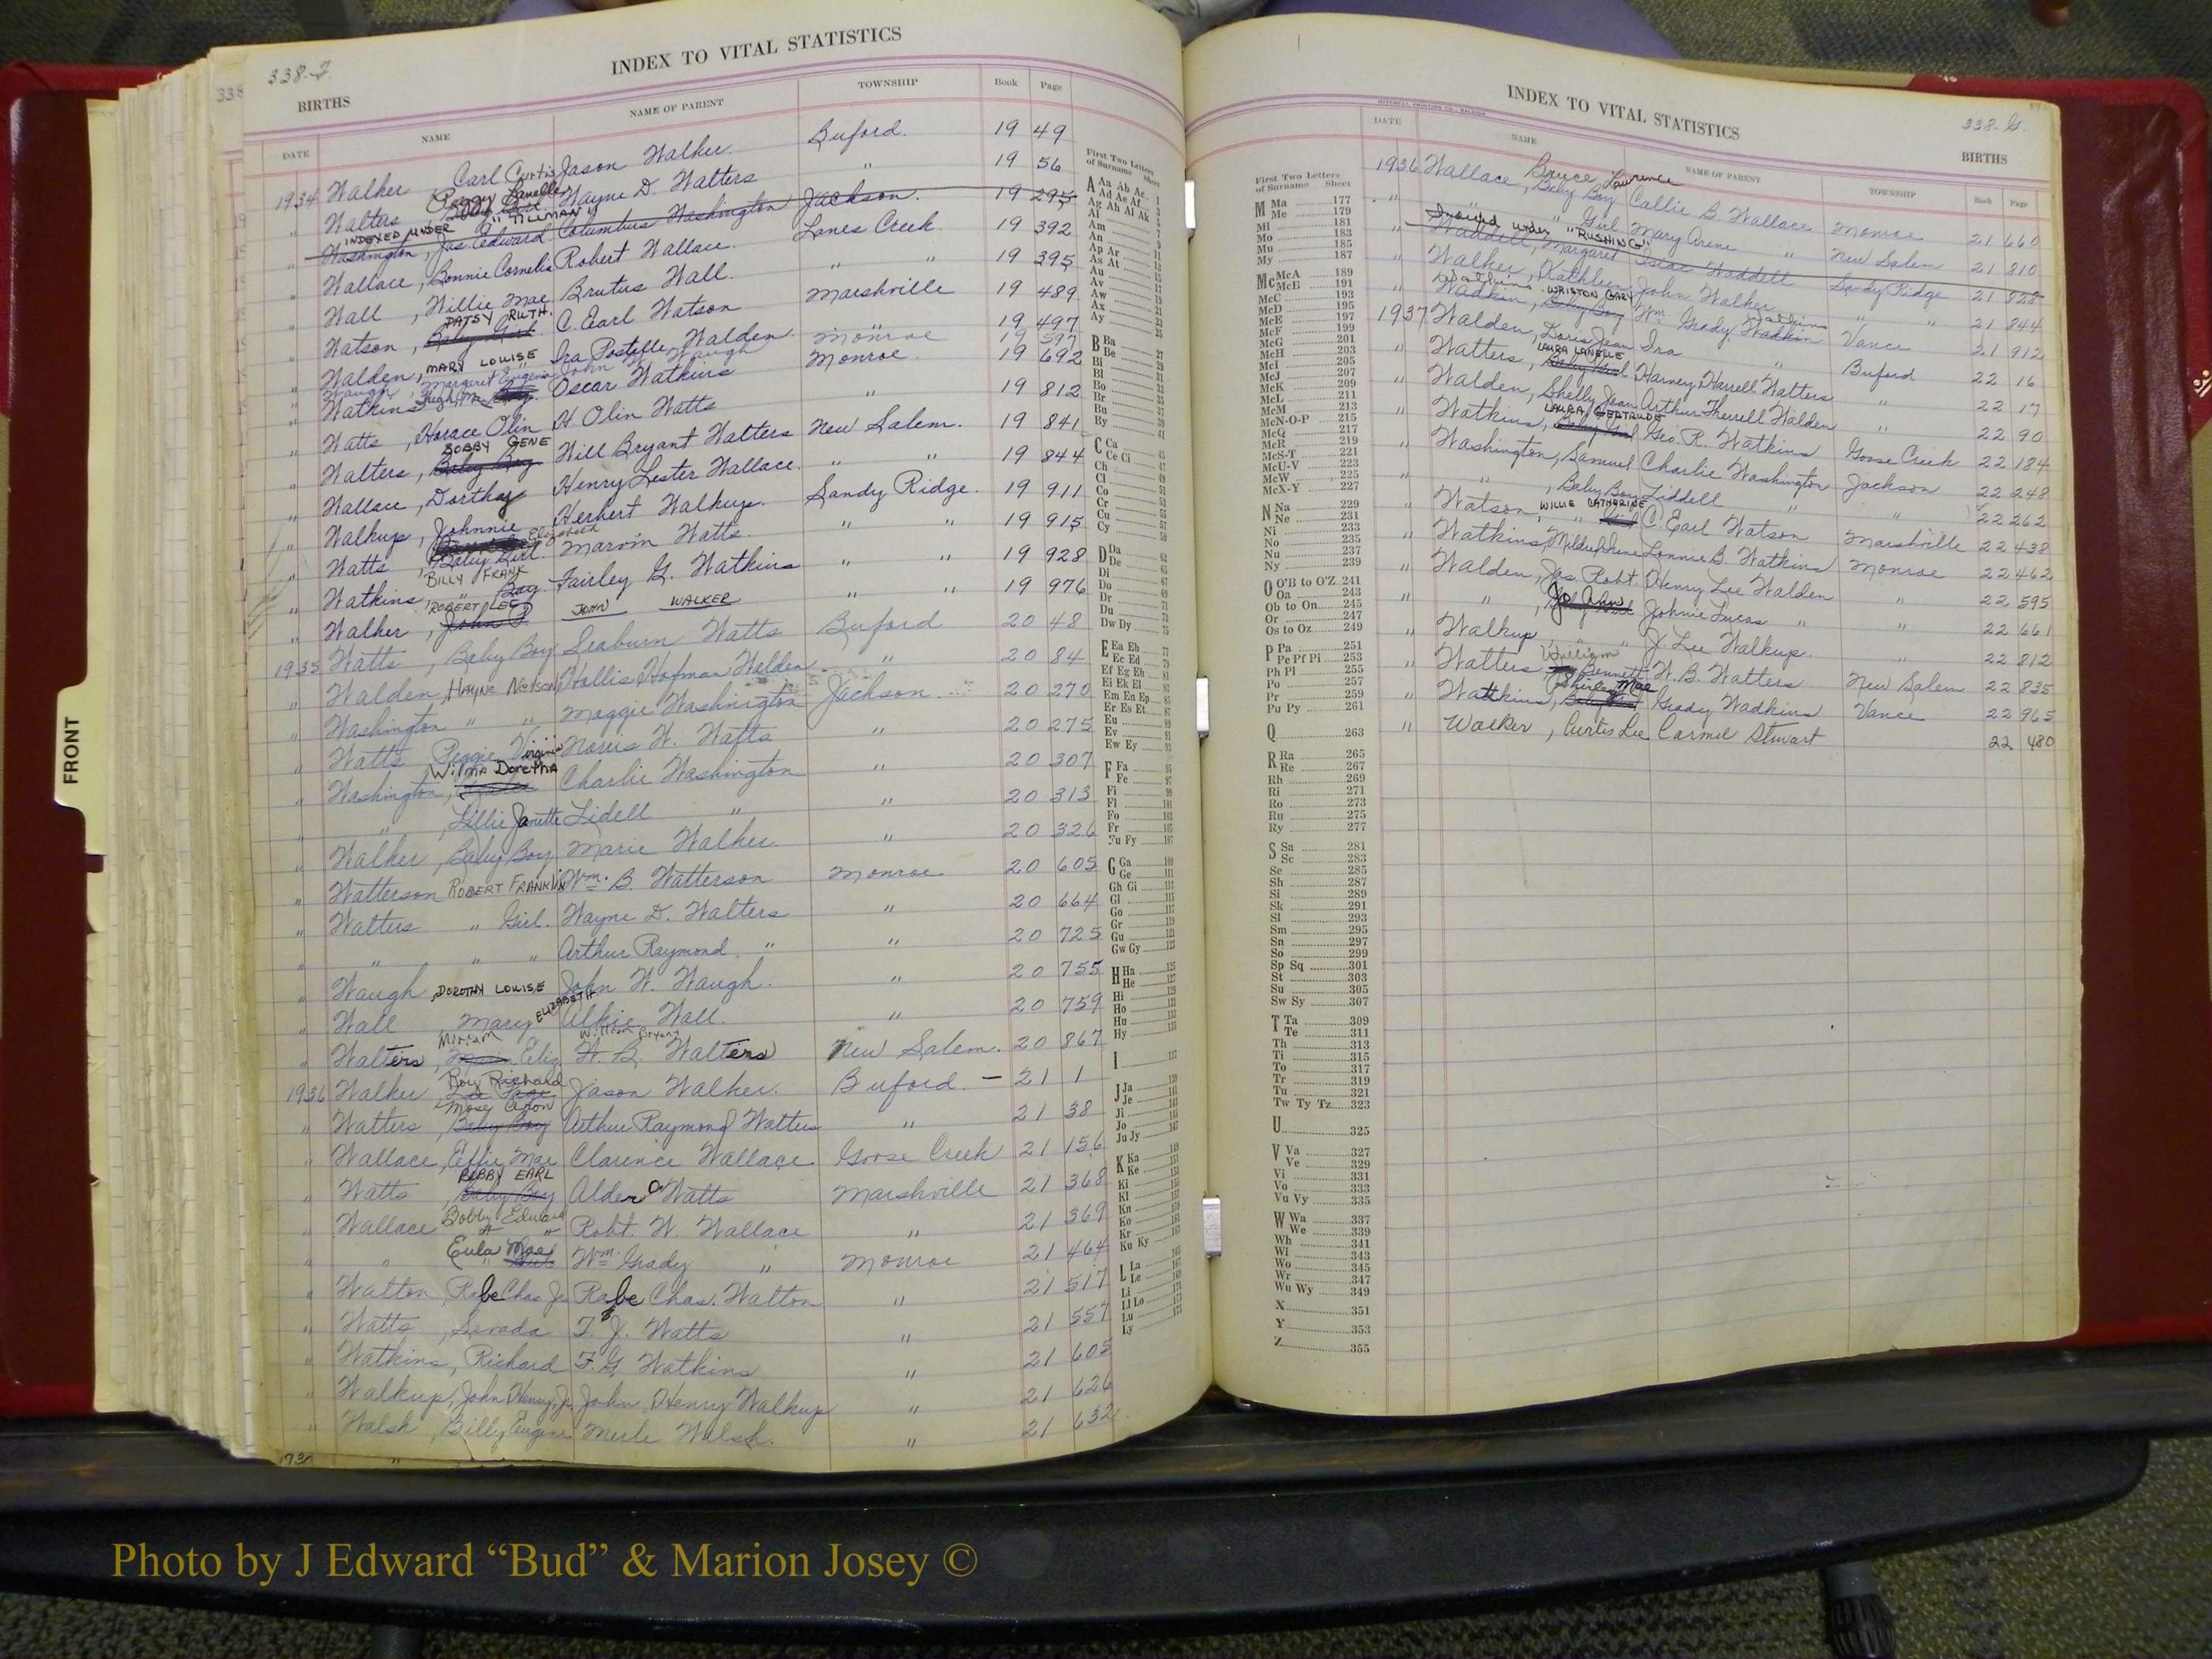 338-F
INDEX TO VITAL STATISTICS
BIRTHS
DATE NAME NAME OF PARENT TOWNSHIP Book Page
1934 Walker Carl Curtis Jason Walker Buford. 19 49
" Walters Peggy Lanelle Wayne D. Walters " 19 56
INDEXED UNDER "TILLMAN"
" Washington, Jas. Edward Columbus Washington Jackson. 19 295
" Wallace, Bonnie Cornelia Robert Wallace. Lanes Creek. 19 392
" Wall, Willie Mae Brutus Wall. " " 19 395
" Watson, PATSY RUTH. C. Earl Watson Marshville 19 489
" Walden, MARY LOUISE Ira Postelle Walden " 19 497
" Waugh, Margaret Eugenia John W. Waugh Monroe 19 597
" Watkins Oscar Watkins Monroe. 19 692
" Watts, Horace Olin H. Olin Watts " 19 812
" Walters, BOBBY GENE Will Bryant Walters New Salem. 19 841
" Wallace, Dorthay Henry Lester Wallace. " " 19 844
" Walkup, Johnnie Herbert Walkup. Sandy Ridge. 19 911
" Watts, Baby Girl Elizabeth Marvin Watts. " " 19 915
" Watkins, BILLY FRANK Boy Fairley G. Watkins " " 19 928
" Walker, ROBERT LEE JOHN WALKER " " 19 976
1935 Watts, Baby Boy Seaburn Watts Buford 20 48
" Walden, HAYNE NELSON Hollis Hofman Walden " 20 84
" Washington " " Maggie Washington Jackson. 20 270
" Watts Peggie Virginia Norris W. Watts " 20 275
" Washington, Wilma Doretha Charlie Washington " 20 307
" " , Lillie Janette Lidell " " 20 313
" Walker, Baby Boy Marie Walker. " 20 326
" Watterson ROBERT FRANKLIN Wm. B. Watterson Monroe 20 605
" Walters " Girl. Wayne D. Walters " 20 664
" " " " Arthur Raymond " " 20 725
" Waugh, DOROTHY LOUISE John W. Waugh. " 20 755
" Wall Mary ELIZABETH Alkie Wall. " 20 759
" Walters, Miriam Eliz W. B. William Bryant Walters New Salem. 20 867
1936 Walker Roy Richard Jason Walker. Buford - 21 1
" Walters, Baby Boy Arthur Raymond Walters " 21 38
" Wallace, Effie Mae Clarence Wallace Goose Creek 21 156
" Watts, BOBBY EARL Baby Boy Alder Watts Marshville 21 368
" Wallace Bobby Edward Robt. W. Wallace " 21 369
" " Eula Mae Wm Grady " Monroe 21 464
" Walton, Rabe Chas Jr. Rabe Chas. Walton " 21 517
" Watts, Sevada T. J. Watts " 21 557
" Watkins, Richard F. G. Watkins " 21 605
" Walkup, John Henry, Jr. John Henry Walkup " 21 626
" Walsh, Billy Eugene Merle Walsh. " 21 632
First Two Letters of Surname Sheet
A Aa Ab Ac 1
Ad Ae Af 3
Ag Ah Ai Ak
Al
Am
An
Ap Ar
As At
Au
Av
Aw
Ax
Ay
B Ba
Be
Bi
Bl
Bo
Br
Bu
By
C Ca
Ce Ci
Ch
Cl
Co
Cr
Cu
Cy
D Da
De
Di
Do
Dr
Du
Dw Dy
E Ea Eb
Ec Ed
Ef Eg Eh
Ei Ek El
Em En Ep
Er Es Et
Eu
Ev
Ew Ey
F Fa
Fe
Fi
Fl
Fo
Fr
Fu Fy
G Ga
Ge
Gh Gi
Gl
Go
Gr
Gu
Gw Gy
H Ha
He
Hi
Ho
Hu
Hy
I
J Ja
Je
Ji
Jo
Ju Jy
K Ka
Ke
Ki
Kl
Kn
Ko
Kr
Ku Ky
L La
Le
Li
Ll Lo
Lu
Ly
INDEX TO VITAL STATISTICS
338-G.
MITCHELL PRINTING CO., RALEIGH
BIRTHS
DATE NAME NAME OF PARENT TOWNSHIP Book Page
1936 Wallace, Bryce Lawrence Baby Boy Callie B. Wallace Monroe 21 660
" " " Girl Mary Arene " New Salem 21 810
Indexed under "RUSHING"
" Waddell, Margaret Isiac Waddell Sandy Ridge 21 828
" Walker, Kathleen John Walker " " 21 844
" Wadkin, WRISTON GARY Baby Boy Wm. Grady Wadkin Vance 21 912
1937 Walden, Doris Jean Ira " Buford 22 16
" Watters, LAURA LANELLE Harvey Harrell Watters " 22 17
" Walden, Shelly Jean Arthur Therrell Walden " 22 90
" Watkins, LAURA GERTRUDE Geo. R. Watkins Goose Creek 22 184
" Washington, Samuel Charlie Washington Jackson 22 248
" " , Baby Boy Liddell " " 22 262
" Watson, WILLIE CATHARINE C. Earl Watson Marshville 22 438
" Watkins, Mildred Irene Lonnie B. Watkins Monroe 22 462
" Walden, Jas. Robt. Henry Lee Walden " 22 595
" " , Jo Ann Johnie Lucas " " 22 661
" Walkup, " " J. Lee Walkup. " 22 812
" Watters William Bennett W. B. Watters New Salem 22 835
" Watkins, Shirley Mae Grady Wadkins Vance 22 965
" Walker, Curtis Lee Carmel Stewart 22 480
First Two Letters of Surname Sheet
M Ma 177
Me 179
Mi 181
Mo 183
Mu 185
My 187
Mc McA 189
McB 191
McC 193
McD 195
McE 197
McF 199
McG 201
McH 203
McI 205
McJ 207
McK 209
McL 211
McM 213
McN-O-P 215
McQ 217
McR 219
McS-T 221
McU-V 223
McW 225
McX-Y 227
N Na 229
Ne 231
Ni 233
No 235
Nu 237
Ny 239
O O'B to O'Z 241
Oa 243
Ob to On 245
Or 247
Os to Oz 249
P Pa 251
Pe Pf Pi 253
Ph Pl 255
Po 257
Pr 259
Pu Py 261
Q 263
R Ra 265
Re 267
Rh 269
Ri 271
Ro 273
Ru 275
Ry 277
S Sa 281
Sc 283
Se 285
Sh 287
Si 289
Sk 291
Sl 293
Sm 295
Sn 297
So 299
Sp Sq 301
St 303
Su 305
Sw Sy 307
T Ta 309
Te 311
Th 313
Ti 315
To 317
Tr 319
Tu 321
Tw Ty Tz 323
U 325
V Va 327
Ve 329
Vi 331
Vo 333
Vu Vy 335
W Wa 337
We 339
Wh 341
Wi 343
Wo 345
Wr 347
Wu Wy 349
X 351
Y 353
Z 355
FRONT
Photo by J Edward “Bud” & Marion Josey ©